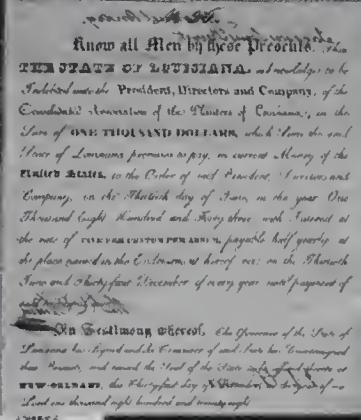 Know all Men by these Presents, That
THE STATE OF LOUISIANA, acknowledges to be
Indebted unto the President, Directors and Company, of the
Consolidated Association of the Planters of Louisiana, in the
Sum of ONE THOUSAND DOLLARS, which Sum the said
State of Louisiana promises to pay, in current Money of the
United States, to the Order of said President, Directors and
Company, on the Thirtieth day of June, in the year One
Thousand Eight Hundred and Forty three with Interest at
the rate of FIVE PER CENTUM PER ANNUM, payable half yearly at
the place named in the Endorsement hereof viz: on the Thirtieth
June and Thirty first December of every year until payment of
In Testimony whereof, The Governor of the State of
Louisiana has signed and the Treasurer of said State has Countersigned
these Presents, and caused the Seal of the State to be affixed thereto at
NEW-ORLEANS, this Thirty first day of December in the year of our
Lord one thousand eight hundred and twenty eight